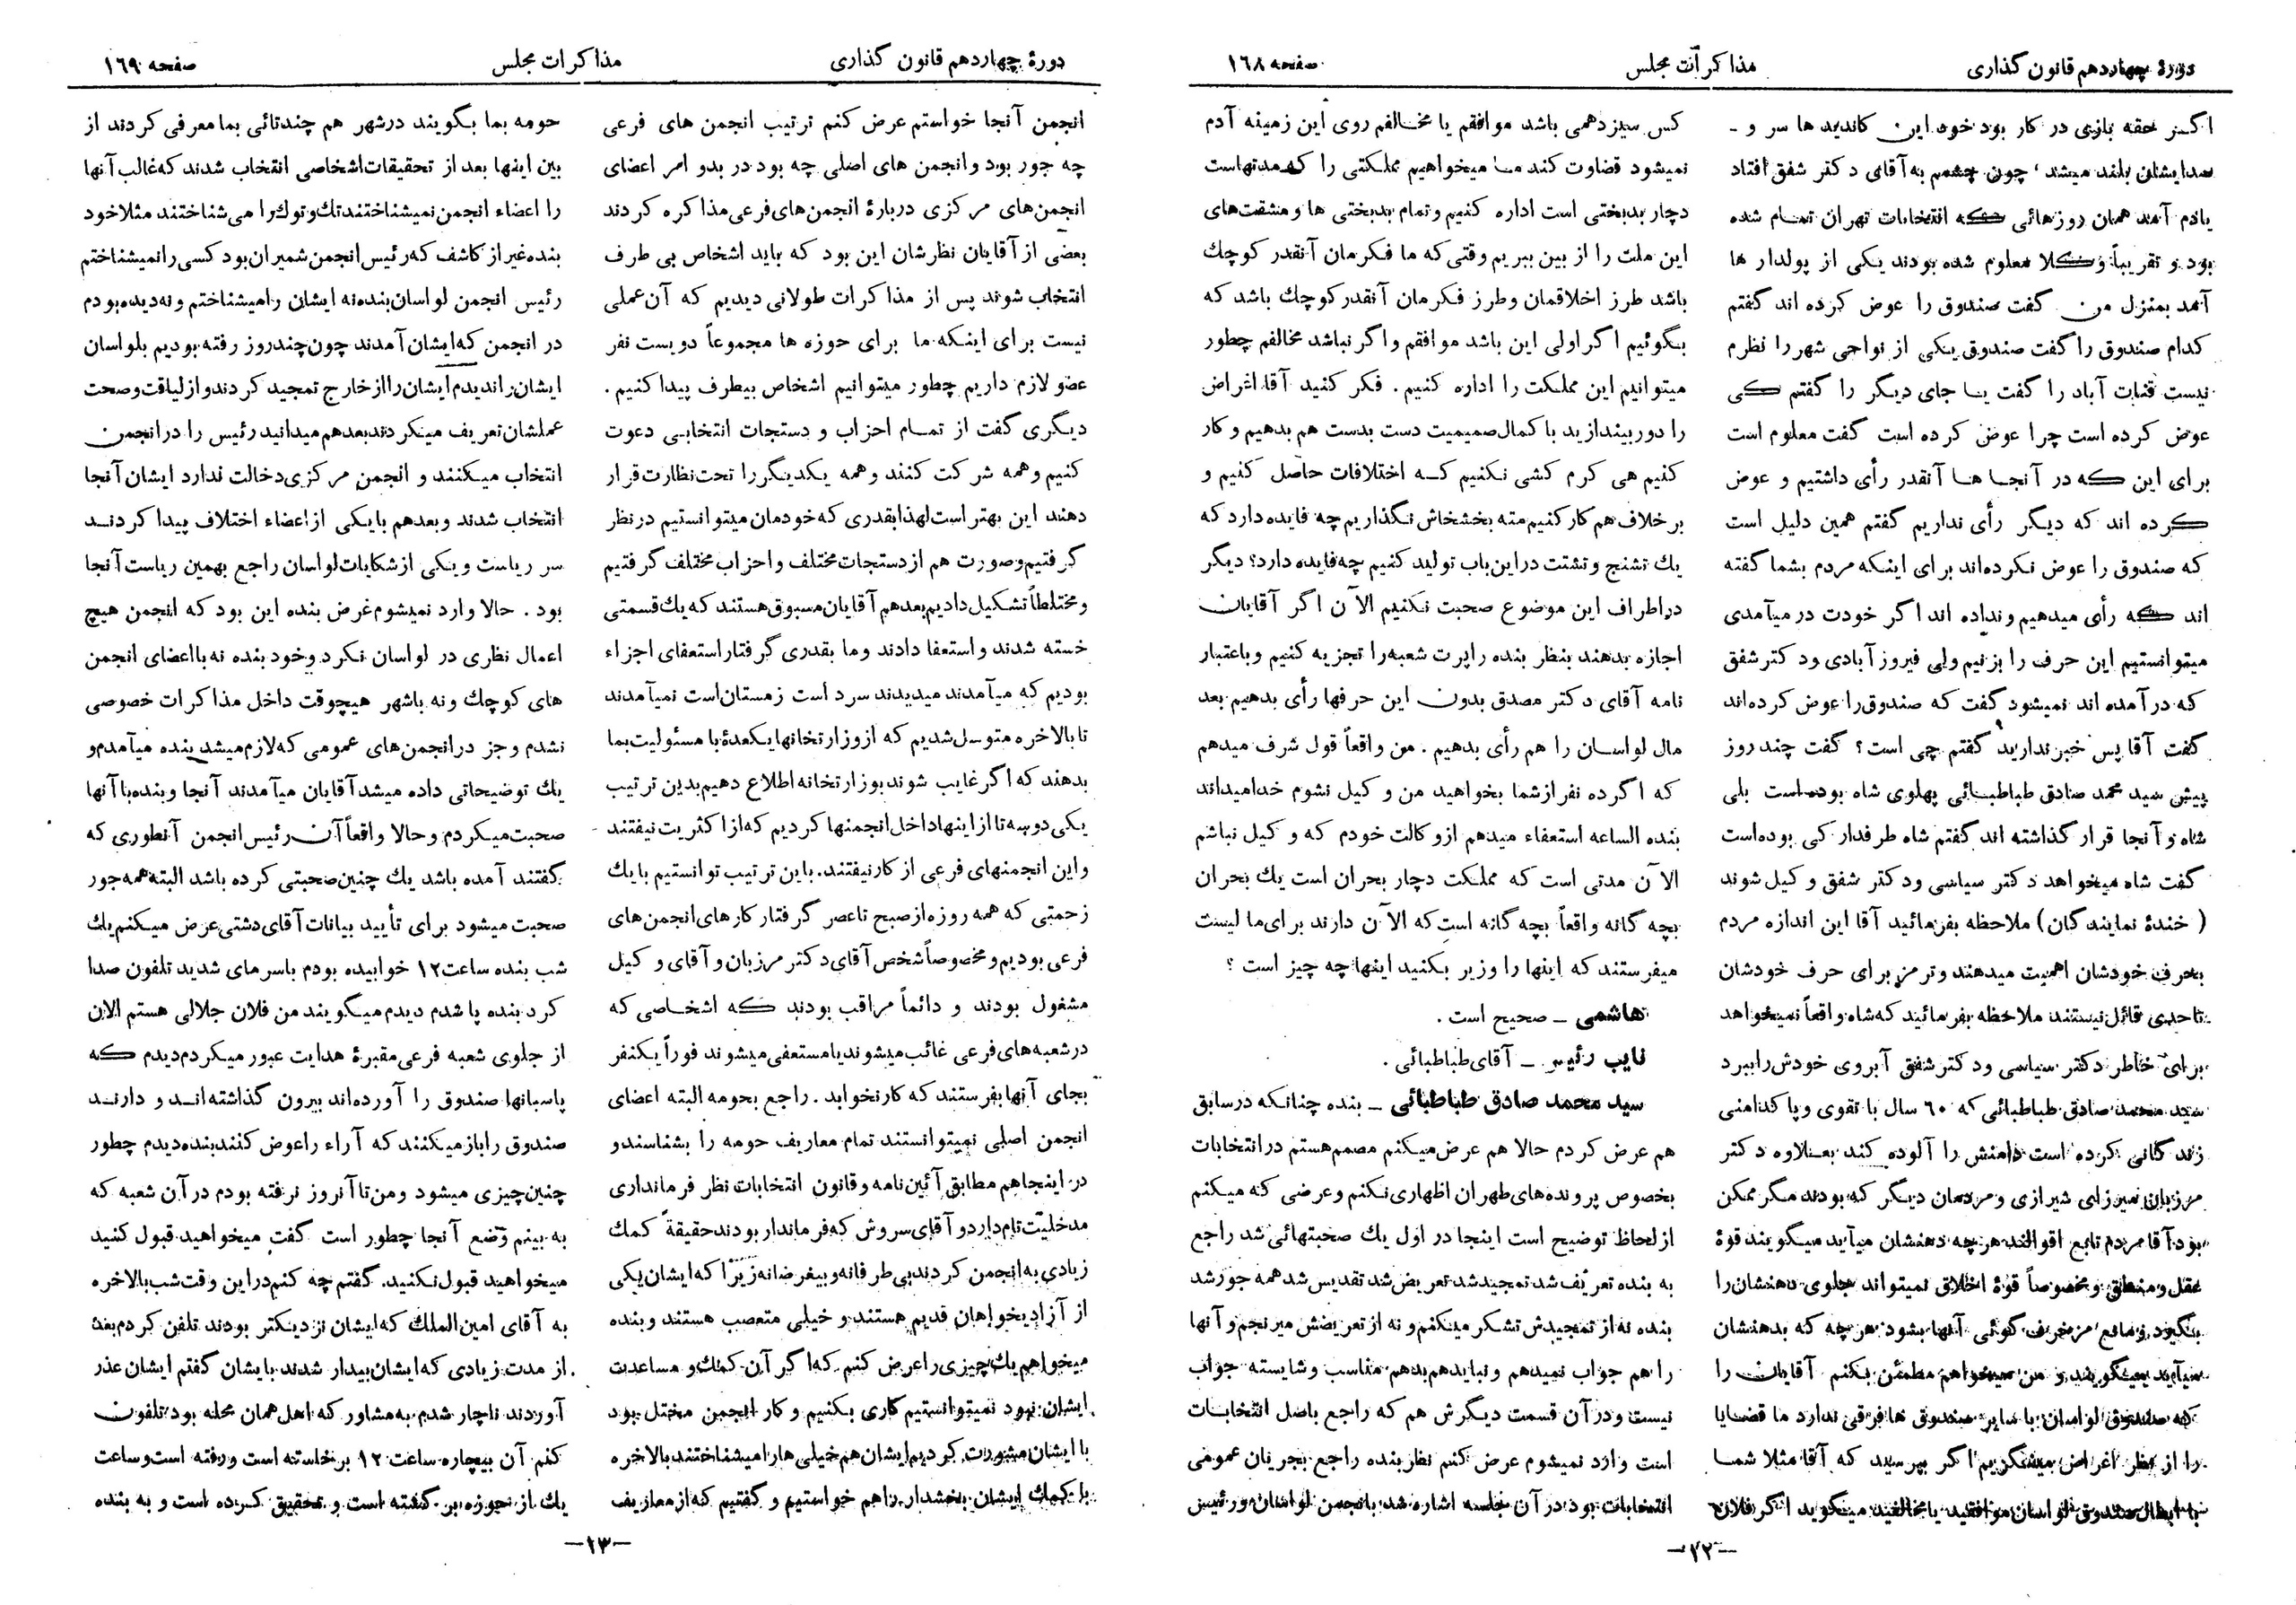 دورهٔ چهاردهم قانون گذاری
مذاکرات مجلس
صفحه ۱۶۸
اگر حقه بازی در کار بود خود این کاندید ها سر و -
صدایشان بلند میشد، چون چشمم به آقای دکتر شفق افتاد
یادم آمد همان روزهائی که انتخابات تهران تمام شده
بود و تقریباً وکلا معلوم شده بودند یکی از پولدار ها
آمد بمنزل من گفت صندوق را عوض کرده اند گفتم
کدام صندوق را گفت صندوق یکی از نواحی شهر را نظرم
نیست قنات آباد را گفت یا جای دیگر را گفتم کی
عوض کرده است چرا عوض کرده است گفت معلوم است
برای این که در آنجا ها آنقدر رأی داشتیم و عوض
کرده اند که دیگر رأی نداریم گفتم همین دلیل است
که صندوق را عوض نکرده‌اند برای اینکه مردم بشما گفته
اند که رأی میدهیم و نداده اند اگر خودت در میآمدی
میتوانستیم این حرف را بزنیم ولی فیروز آبادی و دکتر شفق
که در آمده اند نمیشود گفت که صندوق را عوض کرده‌اند
گفت آقا پس خبر ندارید گفتم چی است؟ گفت چند روز
پیش سید محمد صادق طباطبائی پهلوی شاه بوده است بلی
شاه و آنجا قرار گذاشته اند گفتم شاه طرفدار کی بوده‌است
گفت شاه میخواهد دکتر سیاسی و دکتر شفق وکیل شوند
( خندهٔ نمایندگان) ملاحظه بفرمائید آقا این اندازه مردم
بحرف خودشان اهمیت میدهند و ترمز برای حرف خودشان
تاحدی قائل نیستند ملاحظه بفرمائید که شاه واقعاً نمیخواهد
برای خاطر دکتر سیاسی و دکتر شفق آبروی خودش را ببرد
سید محمد صادق طباطبائی که ۶۰ سال با تقوی و پاکدامنی
زندگانی کرده است دامنش را آلوده کند بعلاوه دکتر
مرزبان میرزای شیرازی و مردمان دیگر که بودند مگر ممکن
بود آقا مردم تابع اقوالند هرچه دهنشان میآید میگویند قوهٔ
عقل و منطق و مخصوصاً قوهٔ اخلاق نمیتواند جلوی دهنشان را
بگیرد و مانع مزخرف گوئی آنها بشود هرچه که بدهنشان
میآید میگویند و من میخواهم مطمئن بکنم آقایان را
که صندوق لواسان با سایر صندوق ها فرقی ندارد ما قضایا
را از نظر اغراض مینگریم اگر بپرسید که آقا مثلا شما
با ابطال صندوق لواسان موافقید یا مخالفید میگوید اگر فلان
کس سیزدهمی باشد موافقم یا مخالفم روی این زمینه آدم
نمیشود قضاوت کند ما میخواهیم مملکتی را که مدتهاست
دچار بدبختی است اداره کنیم و تمام بدبختی ها و مشقت‌های
این ملت را از بین ببریم وقتی که ما فکرمان آنقدر کوچك
باشد طرز اخلاقمان و طرز فکرمان آنقدر کوچك باشد که
بگوئیم اگر اولی این باشد موافقم و اگر نباشد مخالفم چطور
میتوانیم این مملکت را اداره کنیم. فکر کنید آقا اغراض
را دور بیندازید با کمال صمیمیت دست بدست هم بدهیم و کار
کنیم هی کرم کشی نکنیم که اختلافات حاصل کنیم و
برخلاف هم کار کنیم مته بخشخاش نگذاریم چه فایده دارد که
یك تشنج و تشتت در این باب تولید کنیم چه فایده دارد؟ دیگر
در اطراف این موضوع صحبت نکنیم الآن اگر آقایان
اجازه بدهند بنظر بنده راپرت شعبه را تجزیه کنیم و باعتبار
نامه آقای دکتر مصدق بدون این حرفها رأی بدهیم بعد
مال لواسان را هم رأی بدهیم. من واقعاً قول شرف میدهم
که اگر ده نفر از شما بخواهید من وکیل نشوم خدا میداند
بنده الساعه استعفاء میدهم از وکالت خودم که وکیل نباشم
الآن مدتی است که مملکت دچار بحران است یك بحران
بچه گانه واقعاً بچه گانه است که الآن دارند برای ما لیست
میفرستند که اینها را وزیر بکنید اینها چه چیز است ؟
هاشمی ـ صحیح است .
نایب رئیس ـ آقای طباطبائی .
سید محمد صادق طباطبائی ـ بنده چنانکه در سابق
هم عرض کردم حالا هم عرض میکنم مصمم هستم در انتخابات
بخصوص پرونده‌های طهران اظهاری نکنم و عرضی که میکنم
از لحاظ توضیح است اینجا در اول یك صحبتهائی شد راجع
به بنده تعریف شد تمجید شد تعریض شد تقدیس شد همه جور شد
بنده نه از تمجیدش تشکر میکنم و نه از تعریضش میرنجم و آنها
را هم جواب نمیدهم و نباید هم بدهم مناسب و شایسته جواب
نیست و در آن قسمت دیگرش هم که راجع باصل انتخابات
است وارد نمیشوم عرض کنم نظر بنده راجع بجریان عمومی
انتخابات بود در آن جلسه اشاره شد بانجمن لواسان و رئیس
—۱۲—
دورهٔ چهاردهم قانون گذاری
مذاکرات مجلس
صفحه ۱۶۹
انجمن آنجا خواستم عرض کنم ترتیب انجمن های فرعی
چه جور بود و انجمن های اصلی چه بود در بدو امر اعضای
انجمن‌های مرکزی دربارهٔ انجمن‌های فرعی مذاکره کردند
بعضی از آقایان نظرشان این بود که باید اشخاص بی طرف
انتخاب شوند پس از مذاکرات طولانی دیدیم که آن عملی
نیست برای اینکه ما برای حوزه ها مجموعاً دویست نفر
عضو لازم داریم چطور میتوانیم اشخاص بیطرف پیدا کنیم .
دیگری گفت از تمام احزاب و دستجات انتخابی دعوت
کنیم و همه شرکت کنند و همه یکدیگر را تحت نظارت قرار
دهند این بهتر است لهذا بقدری که خودمان میتوانستیم در نظر
گرفتیم و صورت هم از دستجات مختلف و احزاب مختلف گرفتیم
و مختلطاً تشکیل دادیم بعد هم آقایان مسبوق هستند که یك قسمتی
خسته شدند و استعفا دادند و ما بقدری گرفتار استعفای اجزاء
بودیم که میآمدند میدیدند سرد است زمستان است نمیآمدند
تا بالاخره متوسل شدیم که از وزارتخانها یکعدهٔ با مسئولیت بما
بدهند که اگر غایب شوند بوزارتخانه اطلاع دهیم بدین ترتیب
یکی دو سه تا از اینها داخل انجمنها کردیم که از اکثریت نیفتند
و این انجمنهای فرعی از کار نیفتند. باین ترتیب توانستیم با یك
زحمتی که همه روزه از صبح تا عصر گرفتار کارهای انجمن های
فرعی بودیم و مخصوصاً شخص آقای دکتر مرزبان و آقای وکیل
مشغول بودند و دائماً مراقب بودند که اشخاصی که
در شعبه‌های فرعی غائب میشوند یا مستعفی میشوند فوراً یکنفر
بجای آنها بفرستند که کار نخوابد. راجع بحومه البته اعضای
انجمن اصلی نمیتوانستند تمام معاریف حومه را بشناسند و
در اینجا هم مطابق آئین‌نامه و قانون انتخابات نظر فرمانداری
مدخلیت تام دارد و آقای سروش که فرماندار بودند حقیقةً کمك
زیادی به انجمن کردند بی طرفانه و بیغرضانه زیرا که ایشان یکی
از آزادیخواهان قدیم هستند و خیلی متعصب هستند و بنده
میخواهم یك چیزی را عرض کنم که اگر آن کمك و مساعدت
ایشان نبود نمیتوانستیم کاری بکنیم و کار انجمن مختل بود
با ایشان مشورت کردیم ایشان هم خیلی ها را میشناختند بالاخره
با کمك ایشان بخشدار را هم خواستیم و گفتیم که از معاریف
حومه بما بگویند در شهر هم چندتائی بما معرفی کردند از
بین اینها بعد از تحقیقات اشخاصی انتخاب شدند که غالب آنها
را اعضاء انجمن نمیشناختند تك و توك را می شناختند مثلا خود
بنده غیر از کاشف که رئیس انجمن شمیران بود کسی را نمیشناختم
رئیس انجمن لواسان بنده نه ایشان را میشناختم و نه دیده بودم
در انجمن که ایشان آمدند چون چند روز رفته بودیم بلواسان
ایشان را ندیدم ایشان را از خارج تمجید کردند و از لیاقت و صحت
عملشان تعریف میکردند بعد هم میدانید رئیس را در انجمن
انتخاب میکنند و انجمن مرکزی دخالت ندارد ایشان آنجا
انتخاب شدند و بعد هم با یکی از اعضاء اختلاف پیدا کردند
سر ریاست و یکی از شکایات لواسان راجع بهمین ریاست آنجا
بود . حالا وارد نمیشوم غرض بنده این بود که انجمن هیچ
اعمال نظری در لواسان نکرد و خود بنده نه با اعضای انجمن
های کوچك و نه باشهر هیچوقت داخل مذاکرات خصوصی
نشدم و جز در انجمن‌های عمومی که لازم میشد بنده میآمدم و
یك توضیحاتی داده میشد آقایان میآمدند آنجا و بنده با آنها
صحبت میکردم و حالا واقعاً آن رئیس انجمن آنطوری که
گفتند آمده باشد یك چنین صحبتی کرده باشد البته همه جور
صحبت میشود برای تأیید بیانات آقای دشتی عرض میکنم یك
شب بنده ساعت ۱۲ خوابیده بودم با سرمای شدید تلفون صدا
کرد بنده پا شدم دیدم میگویند من فلان جلالی هستم الان
از جلوی شعبه فرعی مقبرهٔ هدایت عبور میکردم دیدم که
پاسبانها صندوق را آورده‌اند بیرون گذاشته‌اند و دارند
صندوق را باز میکنند که آراء را عوض کنند بنده دیدم چطور
چنین چیزی میشود و من تا آنروز نرفته بودم در آن شعبه که
به بینم وضع آنجا چطور است گفت میخواهید قبول کنید
میخواهید قبول نکنید. گفتم چه کنم در این وقت شب بالاخره
به آقای امین الملك که ایشان نزدیکتر بودند تلفن کردم بعد
از مدت زیادی که ایشان بیدار شدند بایشان گفتم ایشان عذر
آوردند ناچار شدم به مشاور که اهل همان محله بود تلفون
کنم آن بیچاره ساعت ۱۲ برخاسته است و رفته است و ساعت
یك از حوزه برگشته است و تحقیق کرده است و به بنده
—۱۳—